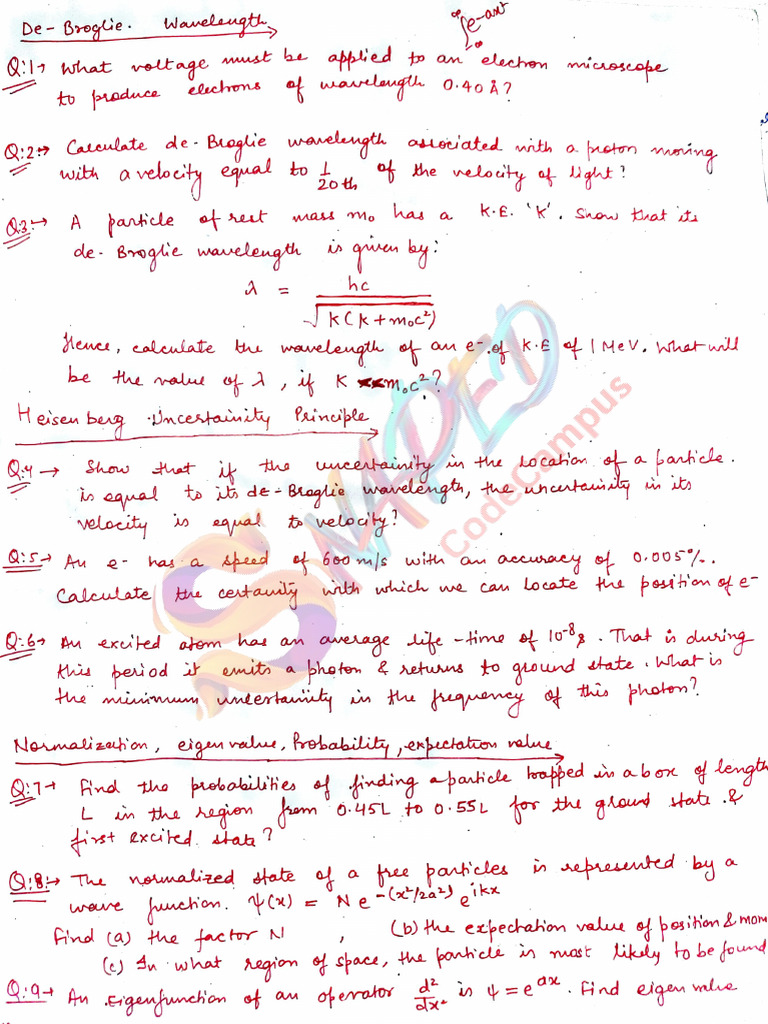 De-Broglie. Wavelength
∫ e^-ax²
Q:1→ What voltage must be applied to an electron microscope
to produce electrons of wavelength 0.40 Å?
Q:2:→ Calculate de-Broglie wavelength associated with a proton moving
with a velocity equal to 1/20 th of the velocity of light?
Q:3:→ A particle of rest mass m₀ has a K.E. 'K'. Show that its
de-Broglie wavelength is given by:
λ = hc/√K(K+m₀c²)
Hence, calculate the wavelength of an e⁻ of K.E of 1 MeV. What will
be the value of λ, if K << m₀c²?
Heisenberg Uncertainity Principle
Q:4→ Show that if the uncertainity in the location of a particle.
is equal to its de-Broglie wavelength, the uncertainity in its
velocity is equal to velocity?
Q:5→ An e- has a speed of 600 m/s with an accuracy of 0.005%.
Calculate the certainity with which we can locate the position of e-
Q:6→ An excited atom has an average life-time of 10⁻⁸s. That is during
this period it emits a photon & returns to ground state. What is
the minimum uncertainity in the frequency of this photon?
Normalization, eigen value, Probability, expectation value
Q:7→ Find the probabilities of finding a particle trapped in a box of length
L in the region from 0.45L to 0.55L for the ground state &
first excited state?
Q:8:→ The normalized state of a free particles is represented by a
wave function. ψ(x) = N e^-(x²/2a²) e^ikx
Find (a) the factor N , (b) the expectation value of position & mom
(c) In what region of space, the particle is most likely to be found
Q:9→ An Eigenfunction of an operator d²/dx² is ψ = e^ax. Find eigen value
SNAPED
CodeCampus